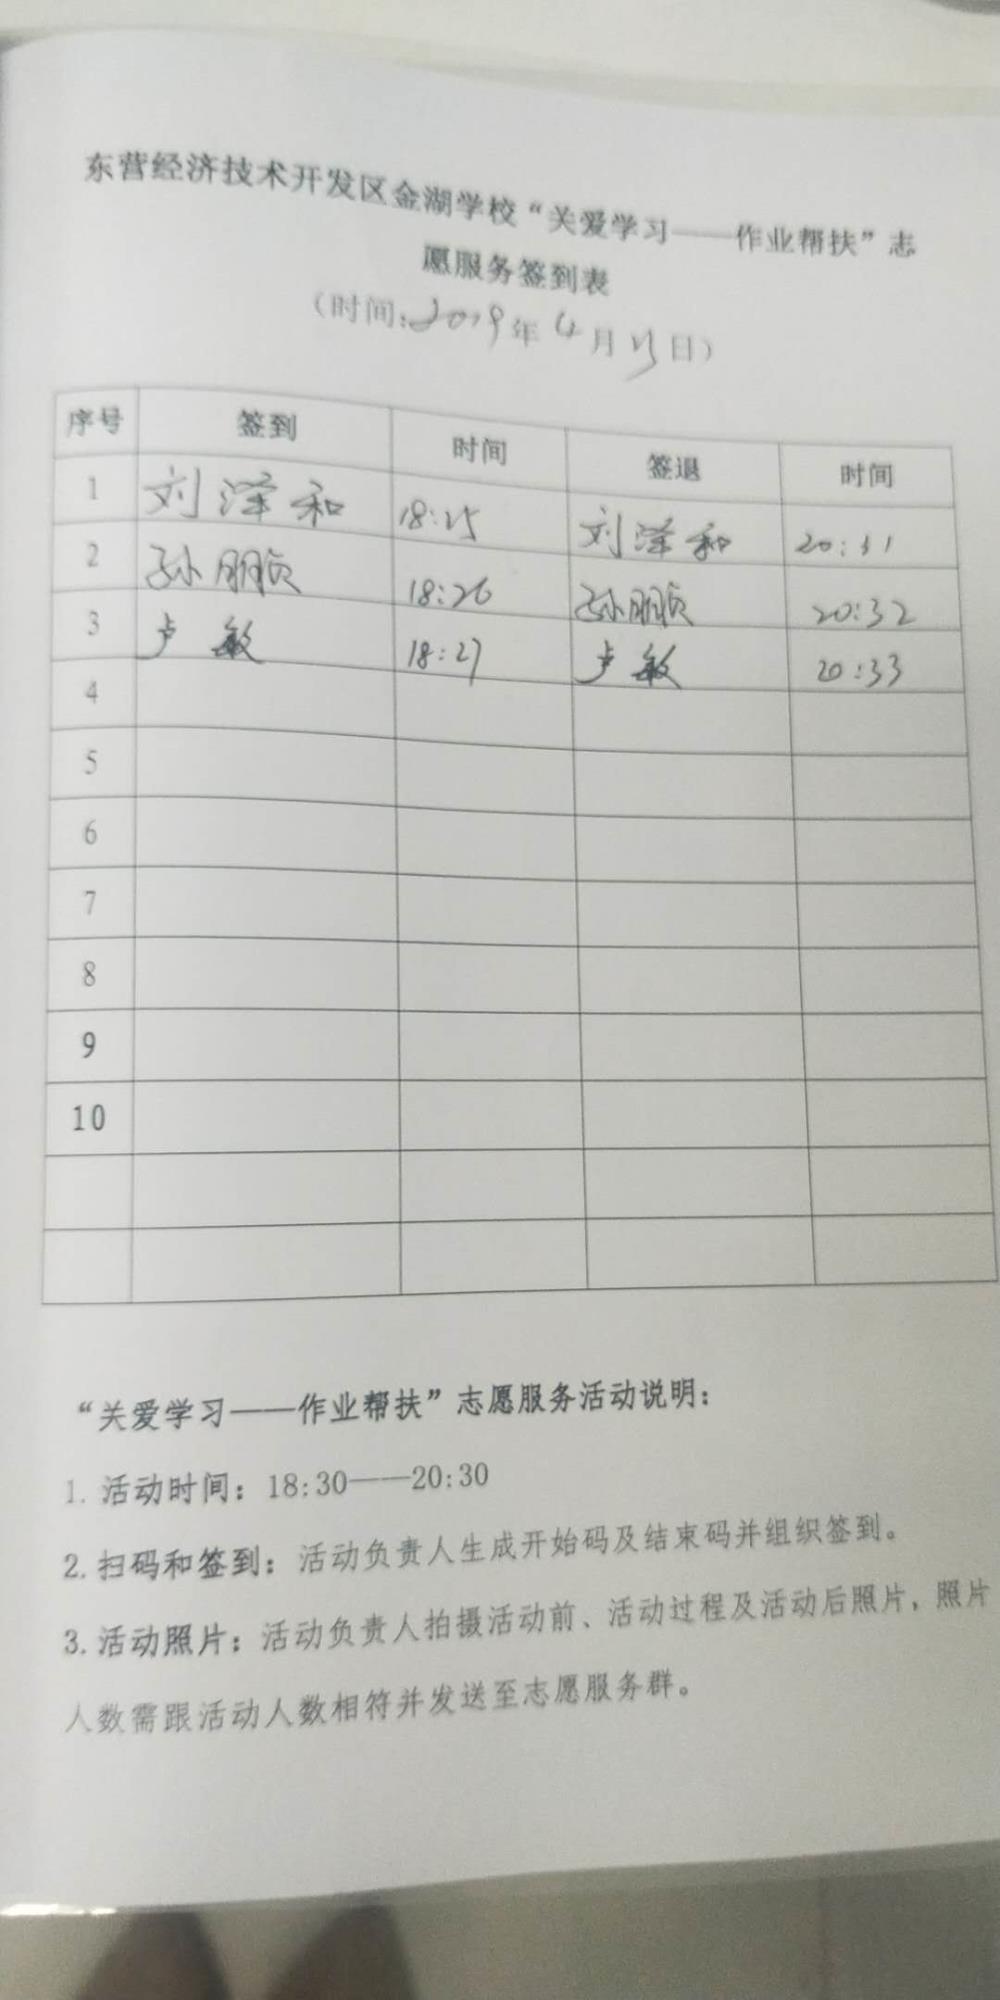 东营经济技术开发区金湖学校“关爱学习——作业帮扶”志
愿服务签到表
（时间：2019年4月15日）
序号 签到 时间 签退 时间
1 刘泽和 18:25 刘泽和 20:31
2 孙朋贞 18:26 孙朋贞 20:32
3 卢敏 18:27 卢敏 20:33
4
5
6
7
8
9
10
“关爱学习——作业帮扶”志愿服务活动说明：
1. 活动时间：18:30——20:30
2. 扫码和签到：活动负责人生成开始码及结束码并组织签到。
3. 活动照片：活动负责人拍摄活动前、活动过程及活动后照片，照片
人数需跟活动人数相符并发送至志愿服务群。